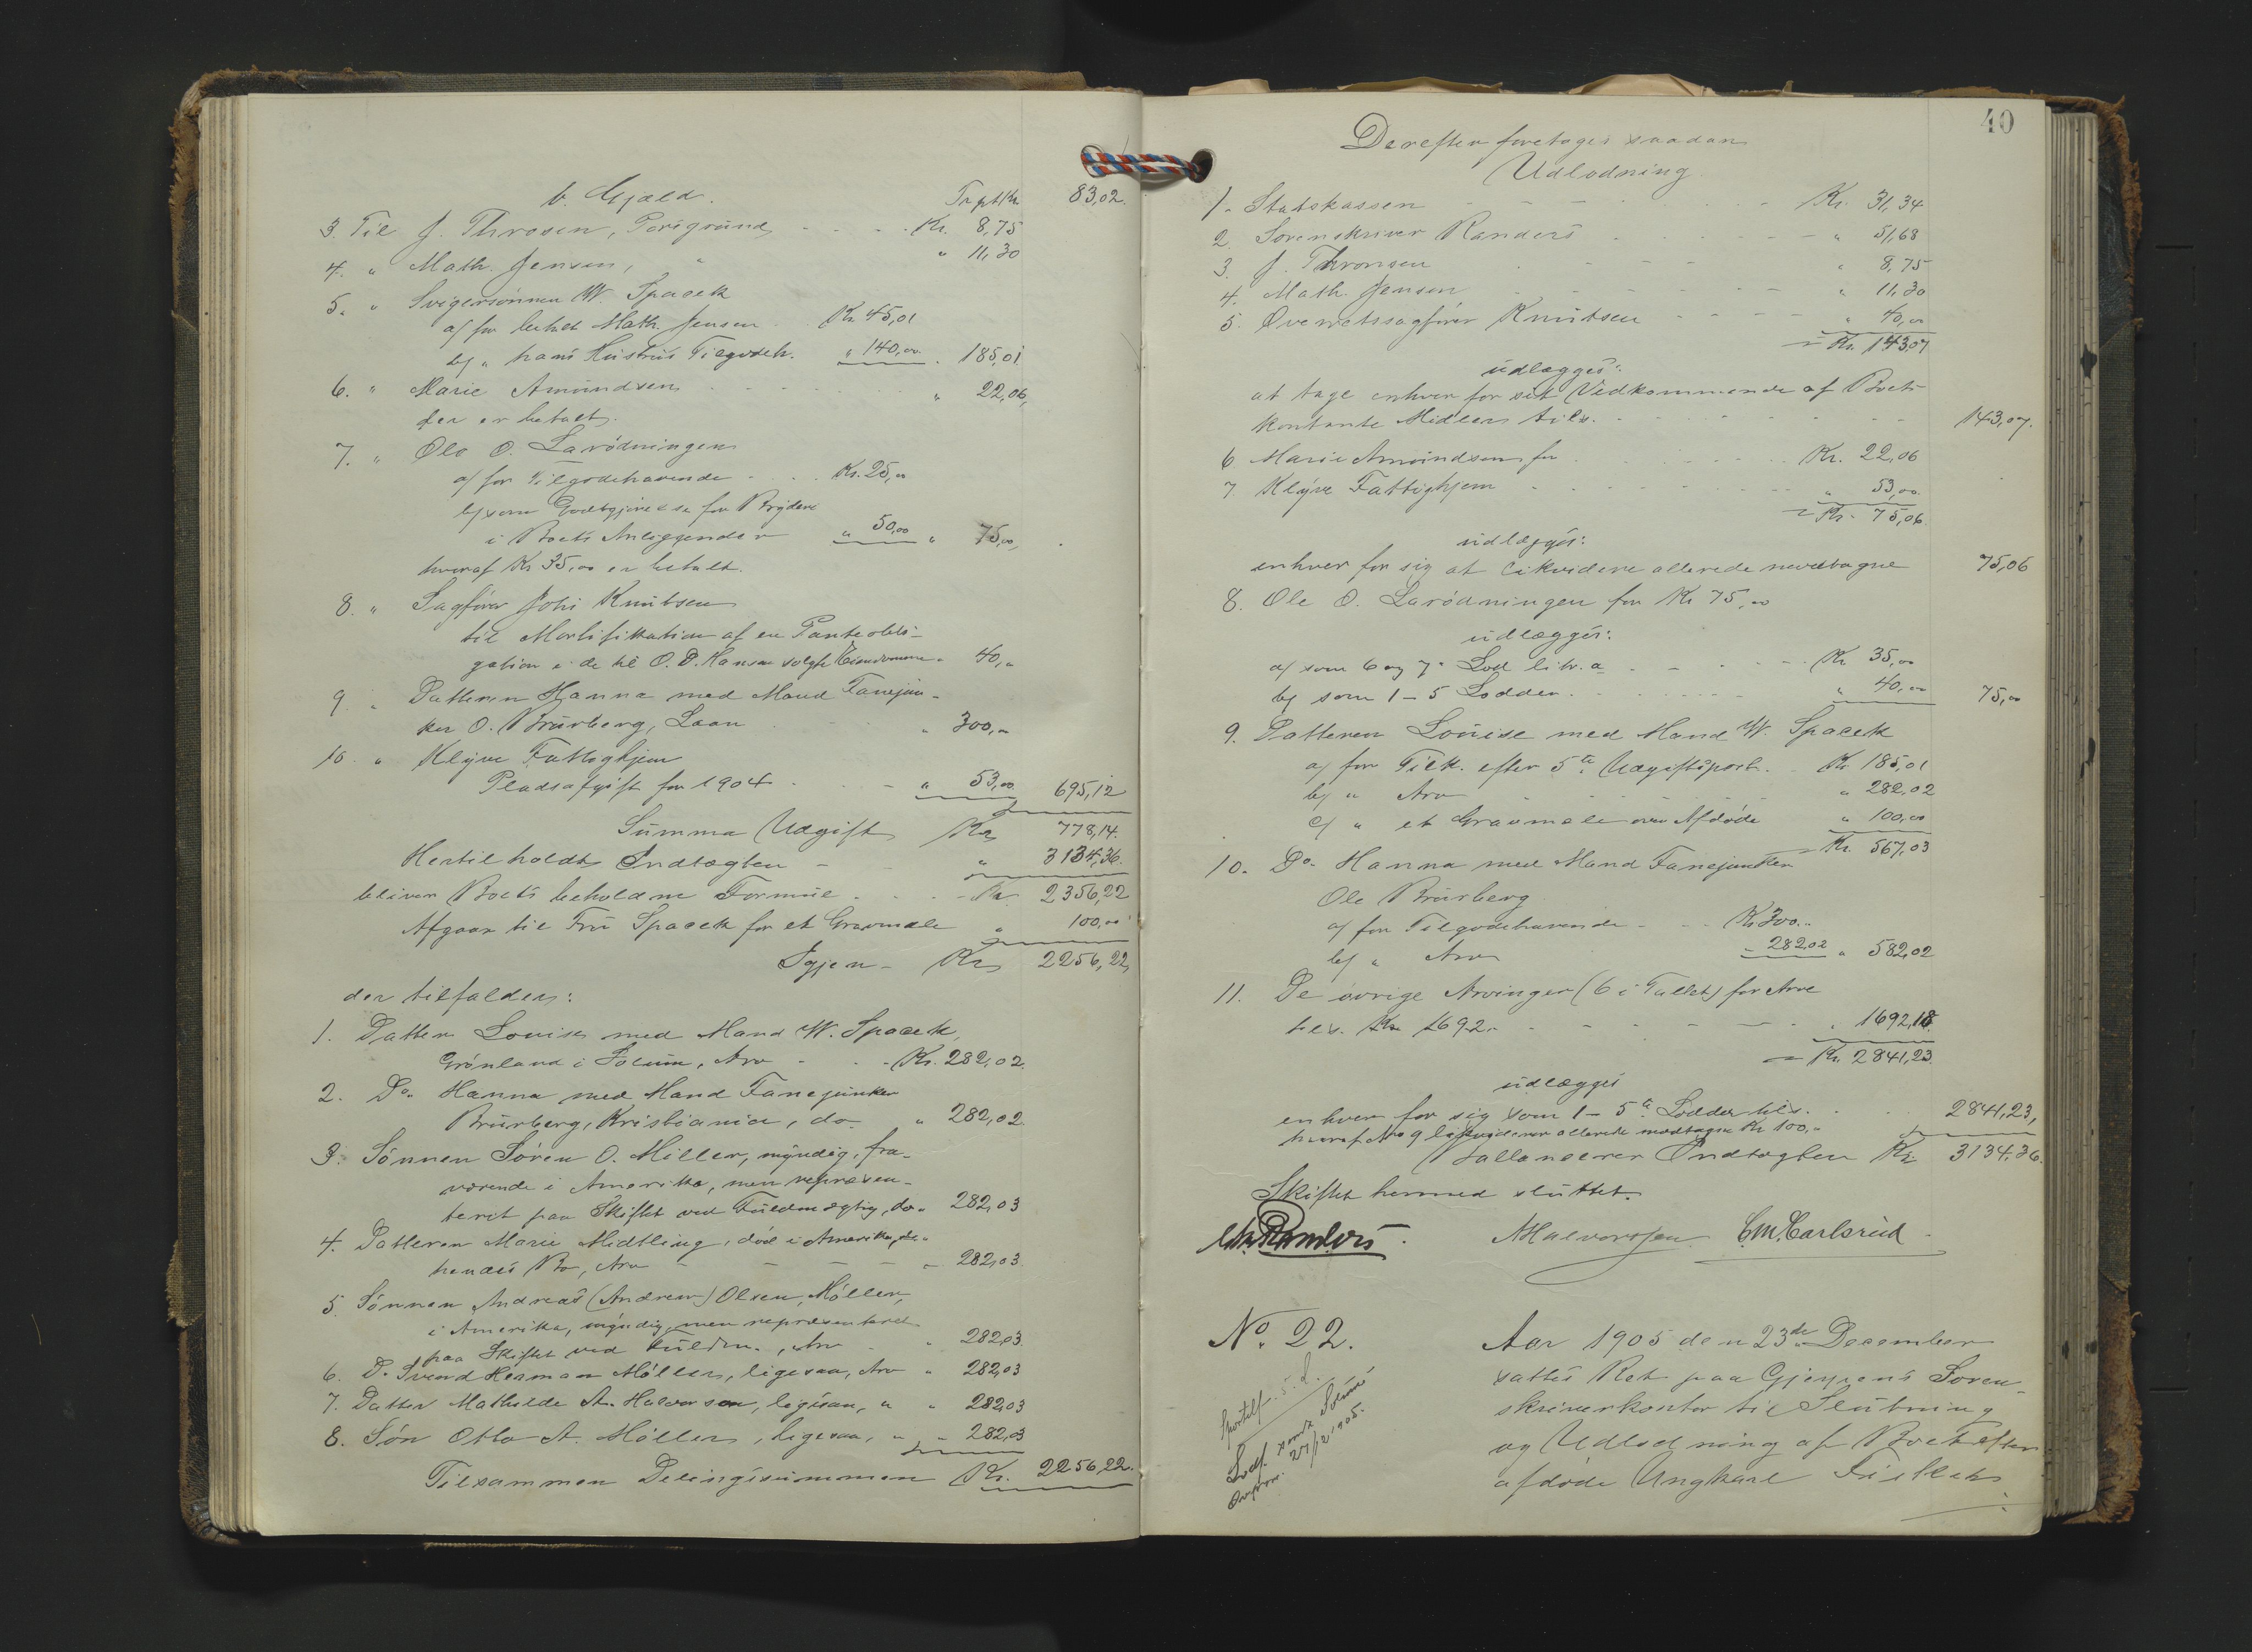 b. Gjæld. Trpt Kr. 83,02.
3. Til J. Throsen, Porsgrund, - - - Kr. 8,75
4. " Math. Jensen, " " 11,30
5. " Svigersønnen W. Spacek
a/ for betalt Math. Jensen Kr. 45,01
b/ " hans Hustrus Tilgodeh. " 140,00. 185,01
6. " Marie Amundsen " 22,06,
der er betalt.
7. " Ole O. Larødningen
a/ for Tilgodehavende Kr. 25,00
b/ som Godtgjørelse for Bryderi
i Boets Anliggender " 50,00 " 75,00,
hvoraf Kr 35,00 er betalt.
8. " Sagfører Johs Knudsen
til Mortifikation af en Panteobli-
gation i de til O. P. Hansen solgte Eiendomme " 40,"
9 " Datteren Hanna med Mand Fanejun-
ker O. Brurberg, Laan " 300,"
10. " Klyve Fattighjem
Pladsafgift for 1904 " 53,00. 695,12
Summa Udgift Kr 778,14.
Hertil holdt Indtægten " 3134,36.
bliver Boets beholdne Formue Kr. 2356,22
Afgaar til Fru Spacek for et Gravmæle " 100,00
Igjen - Kr 2256,22,
der tilfalder:
1. Datter Louise med Mand W. Spacek,
Grønland i Solum, Arv - - Kr. 282,02.
2. Do. Hanna med Mand Fanejunker
Brurberg, Kristiania, do " 282,02.
3. Sønnen Søren O. Miller, myndig, fra-
værende i Amerika, men repræsen-
teret paa Skiftet ved Fuldmægtig, do " 282,03
4. Datteren Marie Midtling, død i Amerika,
hendes Bo, Arv - - - - " 282,03.
5 Sønnen Andreas (Andrew) Olsen Møller,
i Amerika, myndig, men repræsenteret
paa Skiftet ved Fuldm., Arv " 282,03.
6. Do Svend Herman Møller, ligesaa, Arv " 282,03
7. Datter Mathilde A. Halvorsen, ligesaa, " " 282,03
8. Søn Otto A. Møller, ligesaa, " " 282,03
Tilsammen Delingssummen Kr. 2256,22.
40
Derefter foretoges saadan
Udlodning
1. Statskassen Kr. 31,34
2. Sorenskriver Randers " 51,68
3. J. Thronsen " 8,75
4. Math. Jensen " 11,30
5. Overretssagfører Knudsen " 40,00
= Kr. 143,07
udlægges:
at tage enhver for sit Vedkommende af Boets
kontante Midler tils. 143,07.
6 Marie Amundsen for Kr. 22,06
7. Klyve Fattighjem " 53,00.
= Kr. 75,06.
udlægges:
enhver for sig at likvidere allerede modtagne 75,06
8. Ole O. Larødningen for Kr 75,00
udlægges:
a/ som 6 og 7. Lod litr. a Kr 35,00
b/ som 1 - 5 Lodder. " 40,00 75,00
9. Datteren Louise med Mand W. Spacek
a/ for Tilh. efter 5te Udgiftspost. Kr 185,01
b/ " Arv " 282,02
c/ " et Gravmæle over Afdøde " 100,00
= Kr. 567,03
10. Do. Hanna med Mand Fanejunker
Ole Brurberg
a/ for Tilgodehavende - - Kr 300..
b/ " Arv " 282,02 " 582,02
11. De øvrige Arvinger (6 i Tallet) for Arv
tils. Kr 1692. " 1692,18.
= Kr. 2841,23.
udlægges
enhver for sig som 1 - 5te Lodder tils. 2841,23,
hvoraf No 9 likviderer allerede modtagne Kr 100,"
Ballancerer Indtægten Kr. 3134,36.
Skiftet hermed sluttet.
Randers. Halvorsen C.M. Carlsrud
No. 22.
Aar 1905 den 23de December
sattes Ret paa Gjerpens Soren-
skriverkontor til Slutning
og Udlodning af Boet efter
afdøde Ungkarl
27/12 1905.